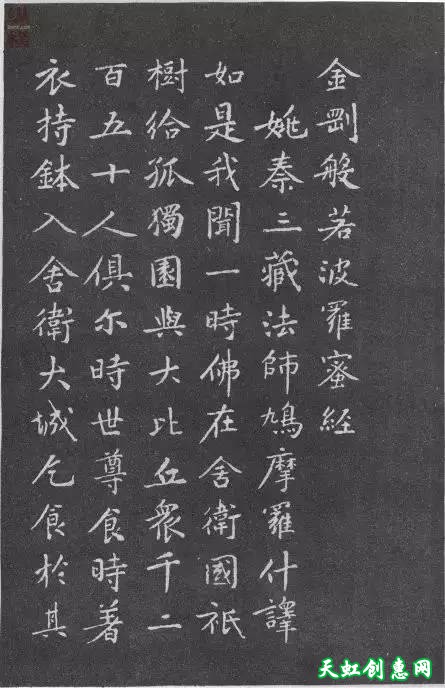 金剛般若波羅蜜經
姚秦三藏法師鳩摩羅什譯
如是我聞一時佛在舍衛國祇
樹給孤獨園與大比丘眾千二
百五十人俱尔時世尊食時著
衣持鉢入舍衛大城乞食於其
天虹创惠网